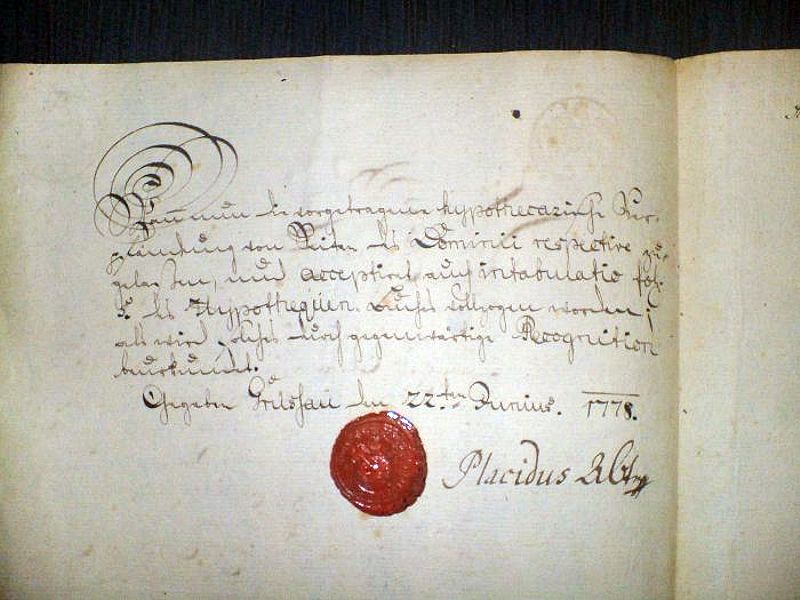 Wann nun die vorgetragene hypothecarische Ver-
pfändung von Seiten des Dominii respective zu-
gelaßen, und acceptiret auch intabulatio fol:
des Hypothequen-Buches vollzogen worden;
als wird dieses durch gegenwärtige Recognition
beurkundet.
Gegeben Grüssau den 22ten Junius. 1778.
Placidus Abt